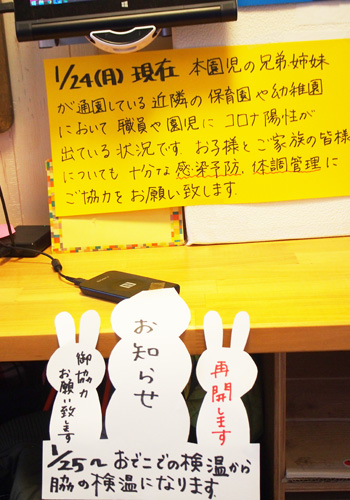 1/24(月) 現在 本園児の兄弟姉妹
が通園している近隣の保育園や幼稚園
において 職員や園児に コロナ陽性が
出ている状況です お子様とご家族の皆様
についても 十分な感染予防、体調管理に
ご協力をお願い致します
お知らせ
御協力
お願い致します
再開します
1/25～ おでこでの検温から
脇の検温になります